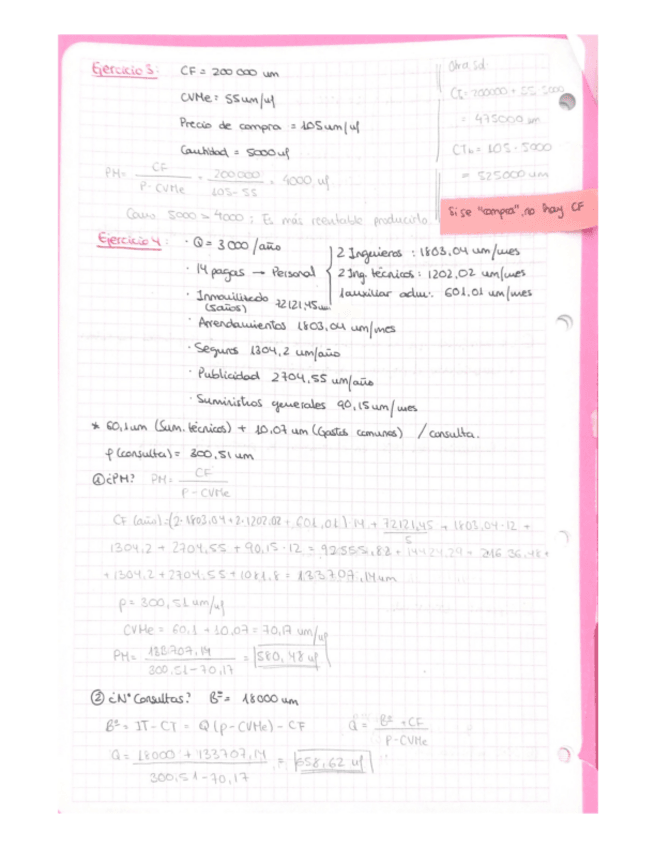 Ejercicio 3: CF = 200 000 um
CVMe = 55 um/uf
Precio de compra = 105 um/uf
Cantidad = 5000 uf
PM = CF / P - CVMe = 200 000 / 105 - 55 = 4000 uf
Como 5000 > 4000 ; Es más rentable producirlo.
Otra sol:
Ct = 200000 + 55 · 5000
= 475000 um
CTb = 105 · 5000
= 525000 um
Si se "compra", no hay CF
Ejercicio 4: · Q = 3 000 / año
· 14 pagas → Personal
2 Ingenieros : 1803,04 um/mes
2 Ing. técnicos : 1202,02 um/mes
1 auxiliar adm. : 601,01 um/mes
· Inmovilizado 72121,45 um
(5 años)
· Arrendamientos 1803,04 um/mes
· Seguros 1304,2 um/año
· Publicidad 2704,55 um/año
· Suministros generales 90,15 um/mes
* 60,1 um (Sum. técnicos) + 10,07 um (Gastos comunes) / consulta.
p (consulta) = 300,51 um
① ¿PM? PM = CF / P - CVMe
CF (año) = (2 · 1803,04 + 2 · 1202,02 + 601,01) 14 + 72121,45 / 5 + 1803,04 · 12 +
1304,2 + 2704,55 + 90,15 · 12 = 92555,82 + 14424,29 + 21636,48 +
+ 1304,2 + 2704,55 + 1081,8 = 133707,14 um
p = 300,51 um/uf
CVMe = 60,1 + 10,07 = 70,17 um/uf
PM = 133707,14 / 300,51 - 70,17 = 580,48 uf
② ¿Nº Consultas? Bº = 18000 um
Bº = IT - CT = Q (p - CVMe) - CF Q = Bº + CF / P - CVMe
Q = 18000 + 133707,14 / 300,51 - 70,17 = 658,62 uf